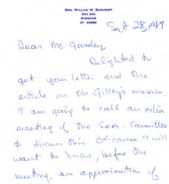 MRS. WILLIAM B.
BOX 232
WINDSOR
VT. 05089
Sept 28, 1989
Dear Mr.
Delighted to
get your letter and the
article on Mr. Gilley's museum.
I am going to call an extra
meeting of the Exec. Committee
to discuss this. Of course I will
want to know, before the
meeting, an approximation of